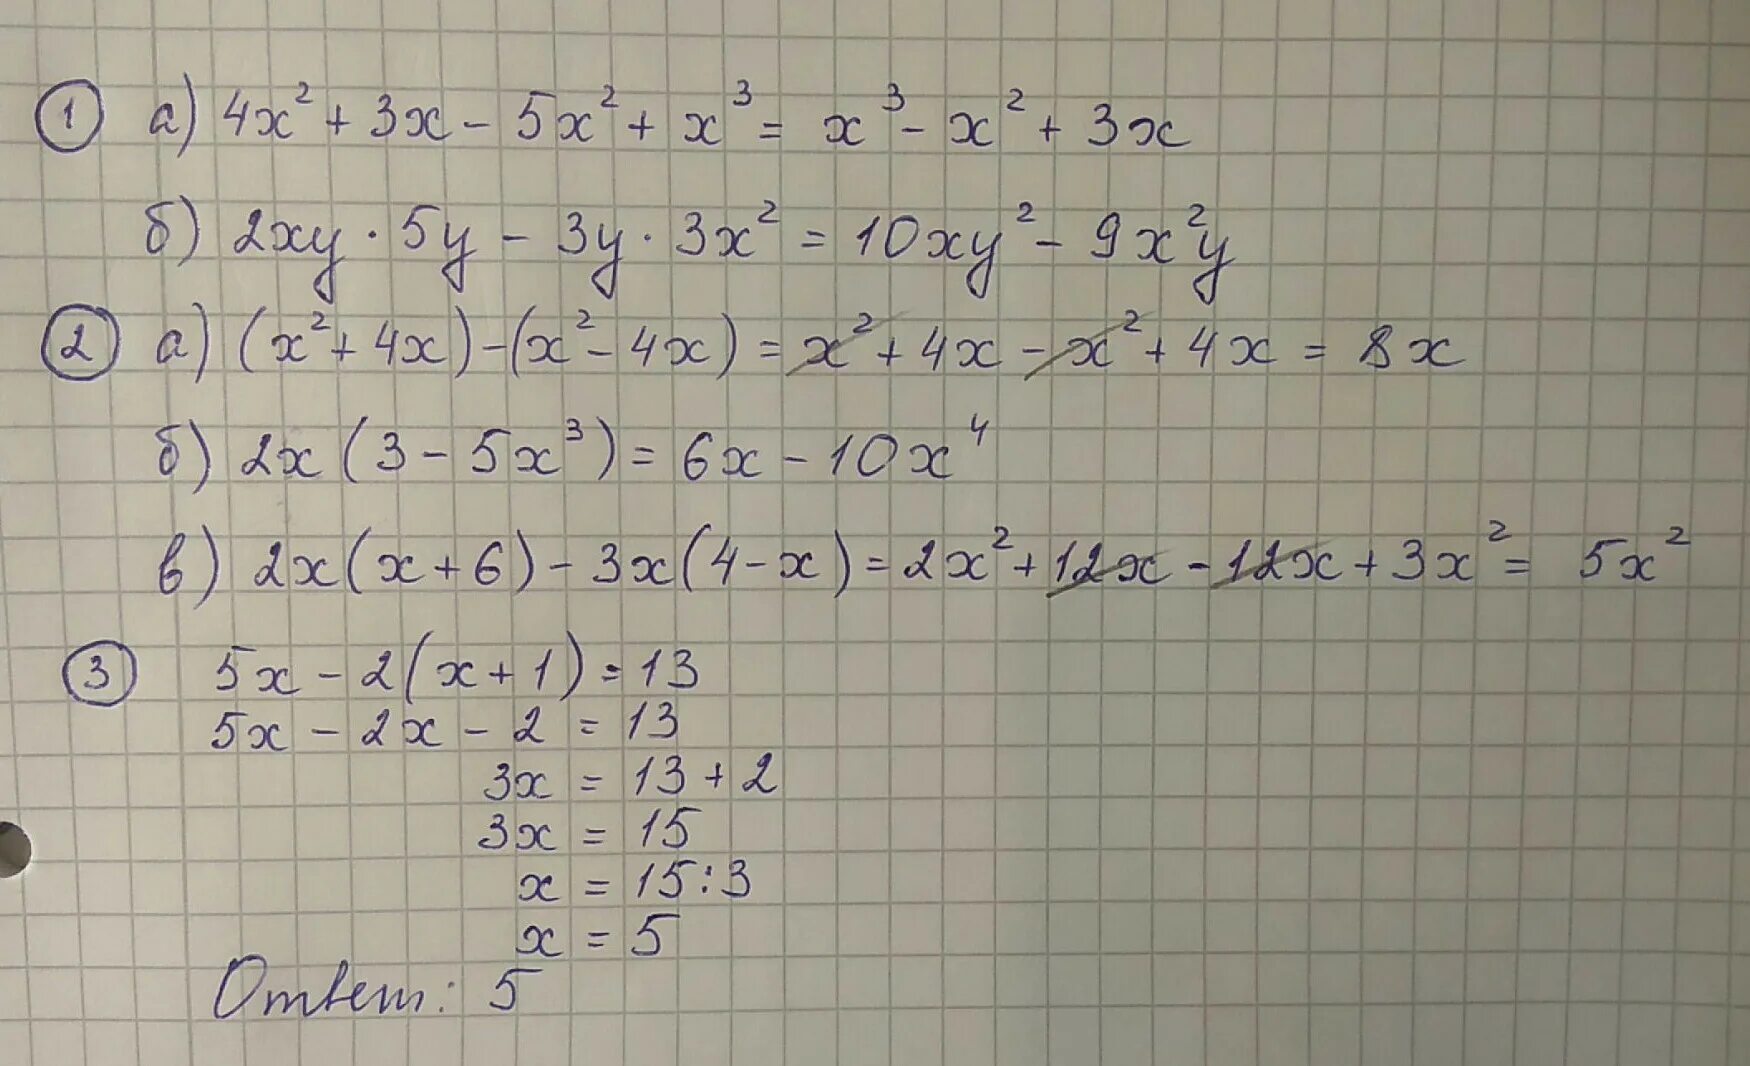 1 а) 4x² + 3x - 5x² + x³ = x³ - x² + 3x
б) 2xy · 5y - 3y · 3x² = 10xy² - 9x²y
2 а) (x² + 4x) - (x² - 4x) = x² + 4x - x² + 4x = 8x
б) 2x (3 - 5x³) = 6x - 10x⁴
в) 2x(x + 6) - 3x(4 - x) = 2x² + 12x - 12x + 3x² = 5x²
3 5x - 2(x + 1) = 13
5x - 2x - 2 = 13
3x = 13 + 2
3x = 15
x = 15 : 3
x = 5
Ответ: 5